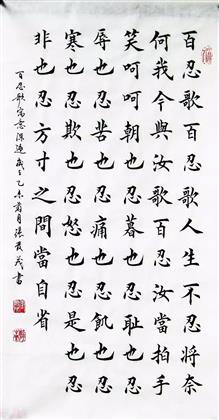 百忍歌百忍歌人生不忍將奈
何我今與汝歌百忍汝當拍手
笑呵呵朝也忍暮也忍恥也忍
辱也忍苦也忍痛也忍飢也忍
寒也忍欺也忍怒也忍是也忍
非也忍方寸之間當自省
百忍歌寓意深遠歲乙未月張書